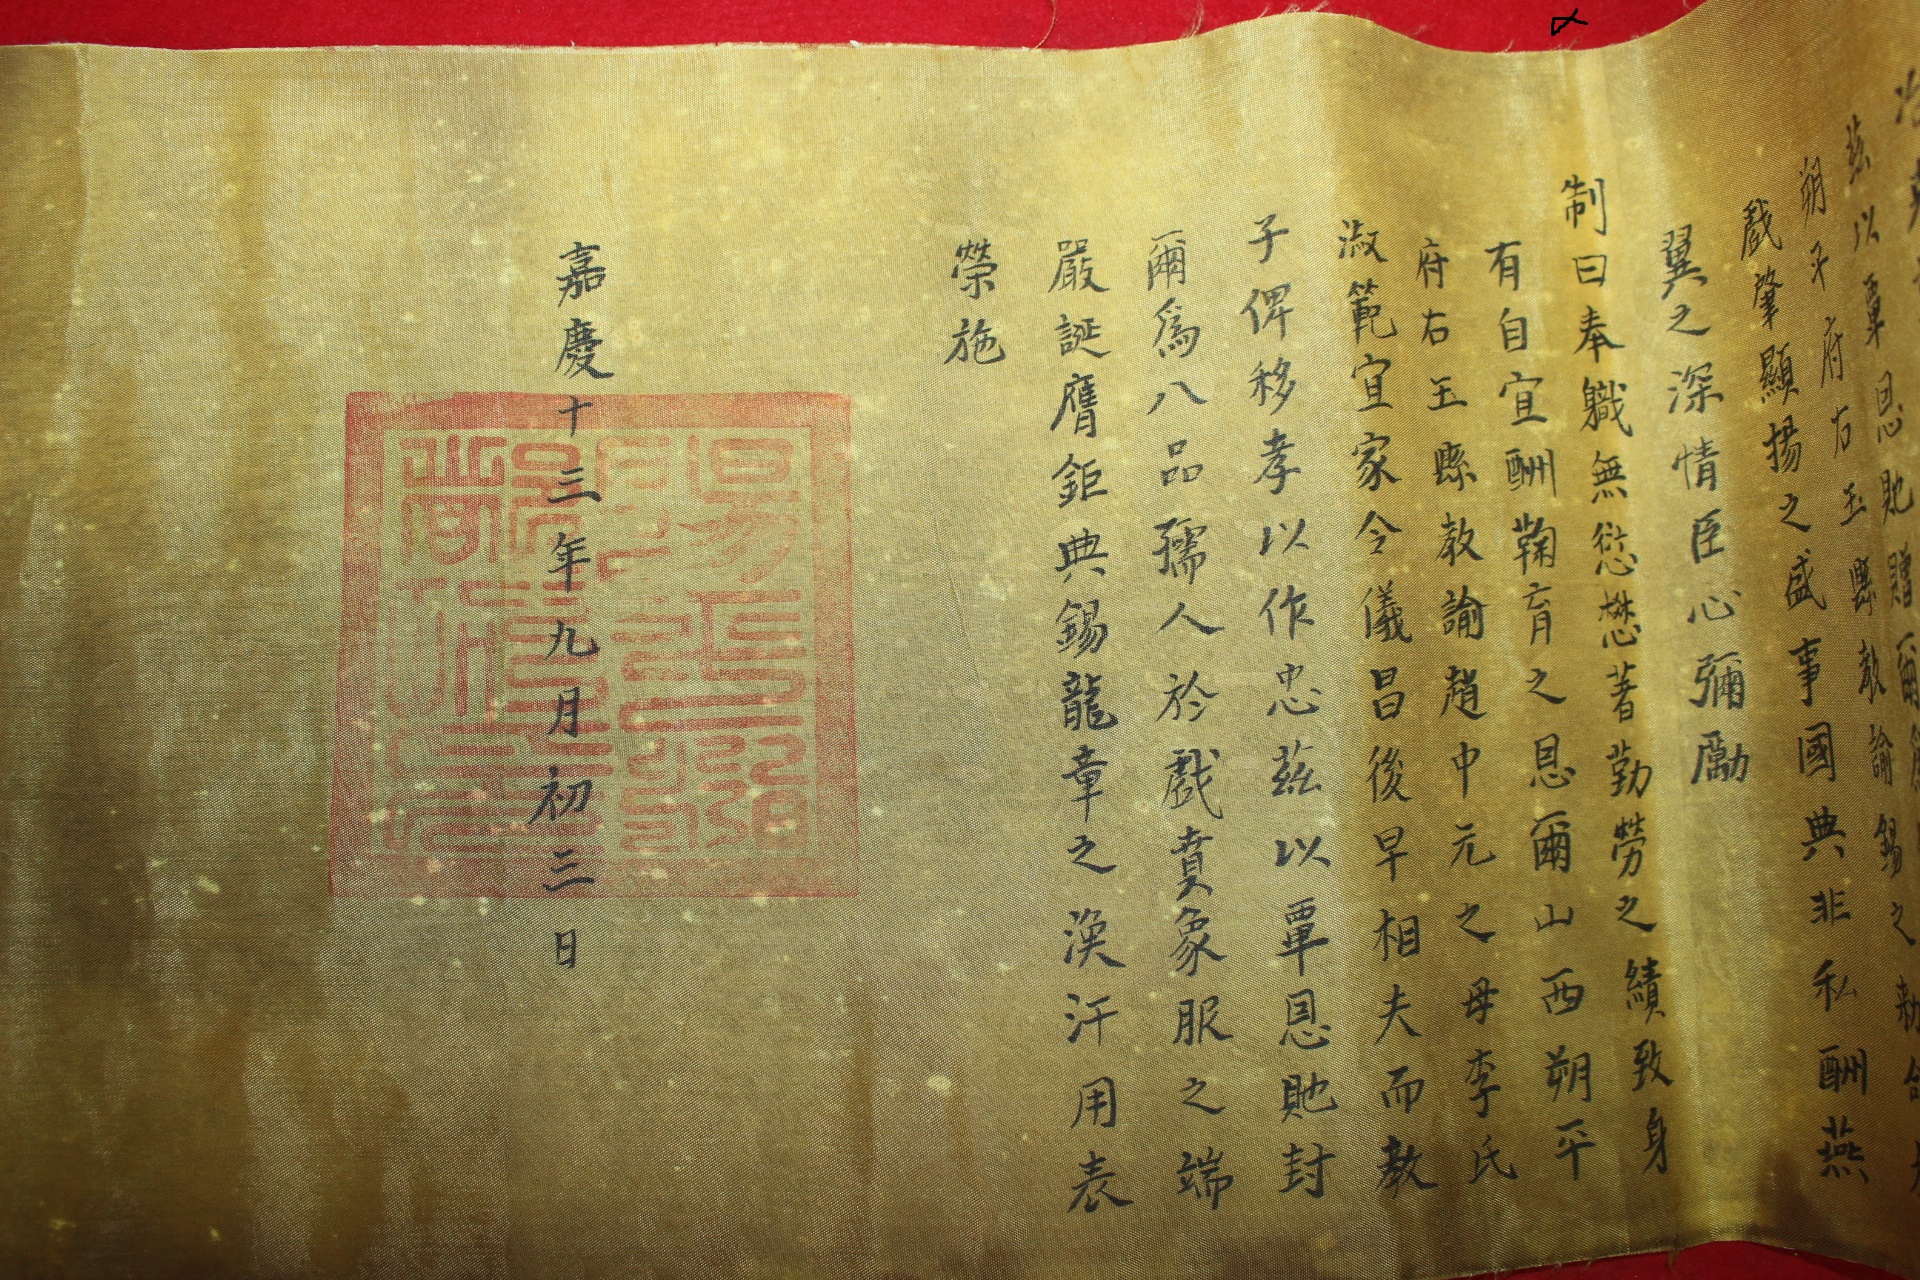 茲以覃恩貤贈爾爲
朔平府右玉縣教諭錫之勅命於
戲肇顯揚之盛事國典非私酬燕
翼之深情臣心彌勵
制曰奉職無愆懋著勤勞之績致身
有自宜酬鞠育之恩爾山西朔平
府右玉縣教諭趙中元之母李氏
淑範宜家令儀昌後早相夫而教
子俾移孝以作忠茲以覃恩貤封
爾爲八品孺人於戲賁象服之端
嚴誕膺鉅典錫龍章之渙汗用表
榮施
嘉慶十三年九月初三日